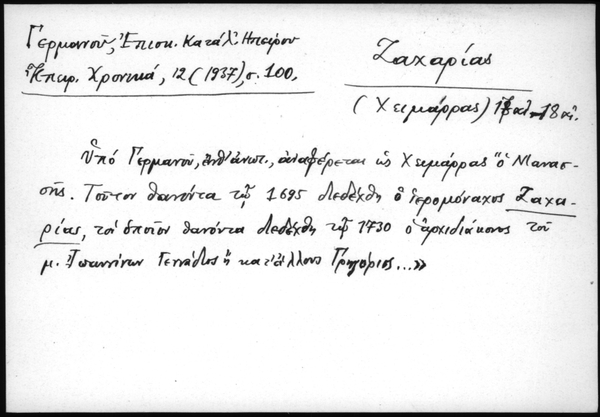 Γερμανοῦ, Ἐπισκ. Κατάλ. Ἠπείρου
Ἠπειρ. Χρονικά, 12 (1937), σ. 100.
Ζαχαρίας
(Χειμάρρας) 17 αἰ. - 18 αἰ.
Ὑπό Γερμανοῦ, ἔνθ' ἀνωτ., ἀναφέρεται ὡς Χειμάρρας "ὁ Μανασ-
σῆς. Τοῦτον θανόντα τῷ 1695 διεδέχθη ὁ ἱερομόναχος Ζαχα-
ρίας, τόν ὁποῖον θανόντα διεδέχθη τῷ 1730 ὁ ἀρχιδιάκονος τοῦ
μ. Ἰωαννίνων Γεννάδιος ἤ κατ' ἄλλους Γρηγόριος...»